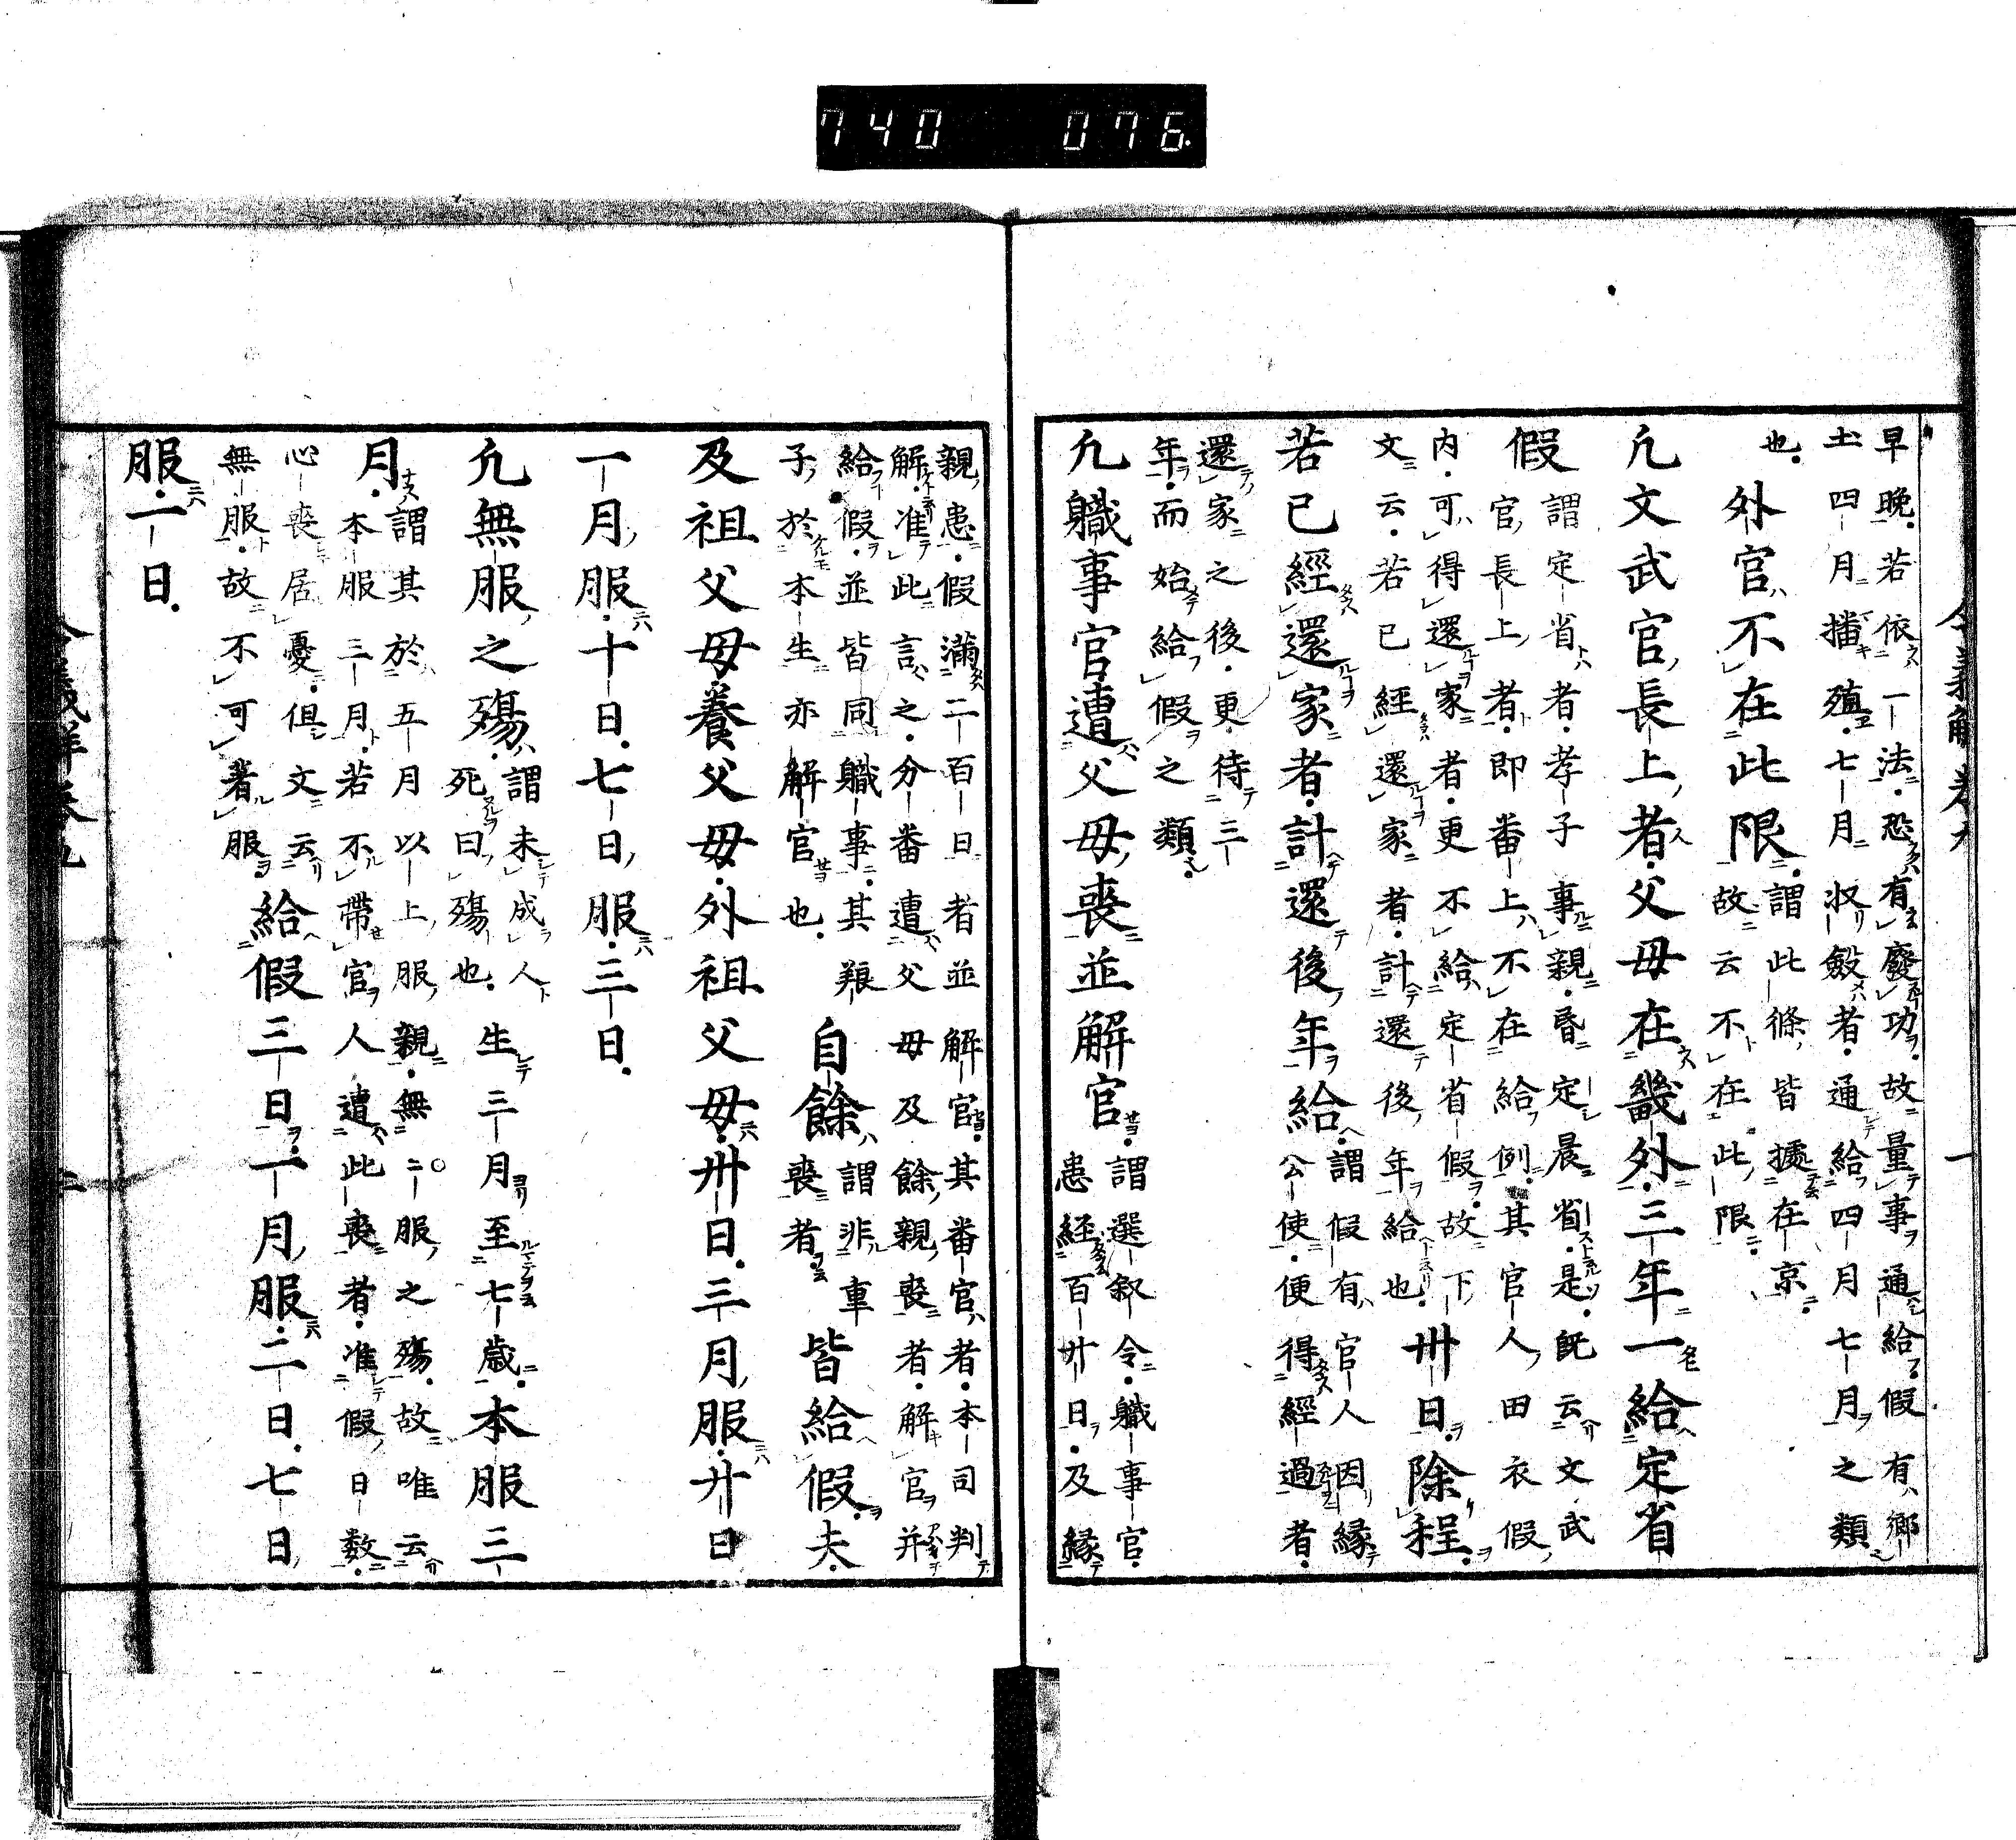 740 076
早晩若依一法恐有廢功故量事通給假有鄉
土四月播殖七月收斂者通給四月七月之類
也外官不在此限謂此條皆據在京
故云不在此限
凡文武官長上者父母在畿外三年一給定省
假謂定省者孝子事親昏定晨省是既云文武
官長上者即番上不在給例其官人田衣假
内可得還家者更不給定省假故下
文云若已經還家者計還後年給也卅日除程
若已經還家者計還後年給謂假有官人因縁
公使便得經過者
還家之後更待三
年而始給假之類
凡軄事官遭父母喪並解官謂選叙令軄事官
患經百廿日及縁
親患假滿二百日者並解官其番官者本司判
解准此言之分番遭父母及餘親喪者解官并
給假並皆同軄事其猥
子於本生亦解官也自餘謂非重
喪者皆給假夫
及祖父母養父母外祖父母卅日三月服廿日
一月服十日七日服三日
凡無服之殤謂未成人
死曰殤也生三月至七歳本服三
月謂其於五月以上服親無二服之殤故唯云
本服三月若不帶官人遭此喪者准假日数
心喪居憂但文云
無服故不可著服給假三日一月服二日七日
服一日